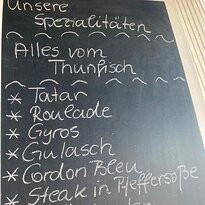 Unsere
Spezialitäten
Alles vom
Thunfisch
* Tatar
* Roulade
* Gyros
* Gulasch
* Cordon Bleu
* Steak in Pfeffersoße